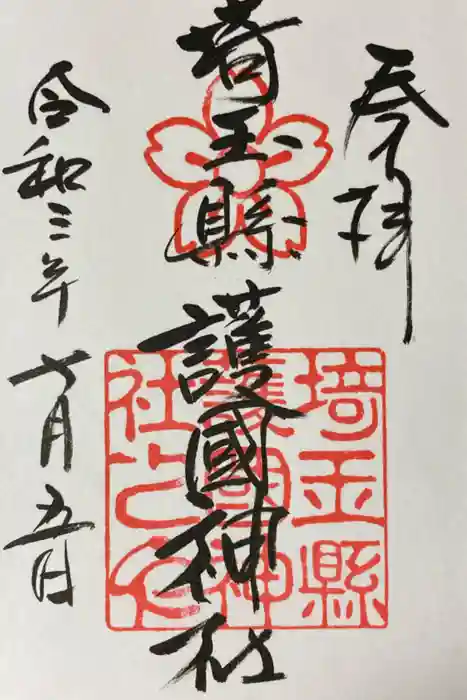 奉拝
埼玉縣護國神社
埼玉縣
護國神
社之印
令和三年七月五日